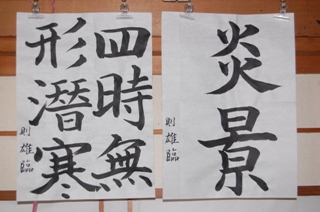 炎景
則雄臨
四時無
形潛寒
則雄臨